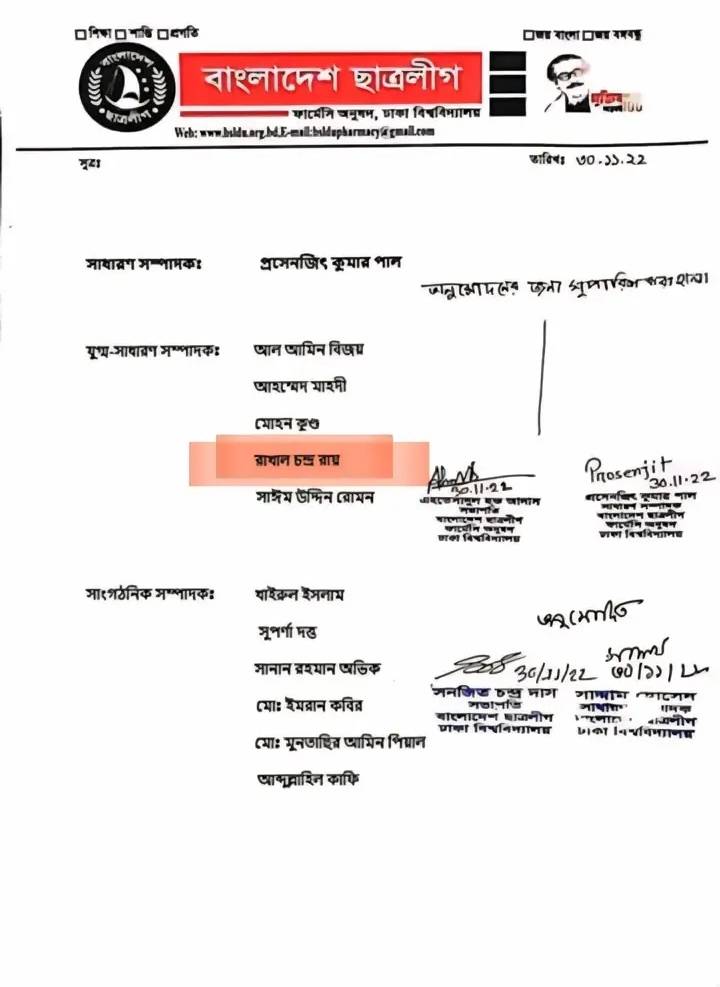 শিক্ষা শান্তি প্রগতি
জয় বাংলা জয় বঙ্গবন্ধু
বাংলাদেশ ছাত্রলীগ
বাংলাদেশ ছাত্রলীগ
ফার্মেসি অনুষদ, ঢাকা বিশ্ববিদ্যালয়
Web: www.bsldu.org.bd,E-mail:bsldupharmacy@gmail.com
মুজিব 100
সূত্রঃ
তারিখঃ ৩০.১১.২২
সাধারণ সম্পাদকঃ প্রসেনজিৎ কুমার পাল
অনুমোদনের জন্য সুপারিশ করা হলো
যুগ্ম-সাধারণ সম্পাদকঃ আল আমিন বিজয়
আহম্মেদ মাহদী
মোহন কুণ্ডু
রাখাল চন্দ্র রায়
সাঈম উদ্দিন রোমন
30.11.22
সভাপতি
বাংলাদেশ ছাত্রলীগ
ফার্মেসি অনুষদ
ঢাকা বিশ্ববিদ্যালয়
Prosenjit
30.11.22
প্রসেনজিৎ কুমার পাল
সাধারণ সম্পাদক
বাংলাদেশ ছাত্রলীগ
ফার্মেসি অনুষদ
ঢাকা বিশ্ববিদ্যালয়
সাংগঠনিক সম্পাদকঃ খাইরুল ইসলাম
সুপর্ণা দত্ত
সানান রহমান অভিক
মোঃ ইমরান কবির
মোঃ মুনতাছির আমিন পিয়াল
আব্দুল্লাহিল কাফি
অনুমোদিত
30/11/22
সনজিত চন্দ্র দাস
সভাপতি
বাংলাদেশ ছাত্রলীগ
ঢাকা বিশ্ববিদ্যালয়
সাদ্দাম
৩০/১১/২২
সাদ্দাম হোসেন
সাধারণ সম্পাদক
বাংলাদেশ ছাত্রলীগ
ঢাকা বিশ্ববিদ্যালয়